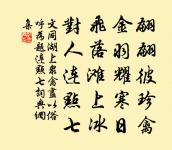 翩翩彼珍禽
金羽耀寒日
飛落灘上冰
對人連點七
文同湖上眾禽盡以俗
呼為題連點七詞典网
集